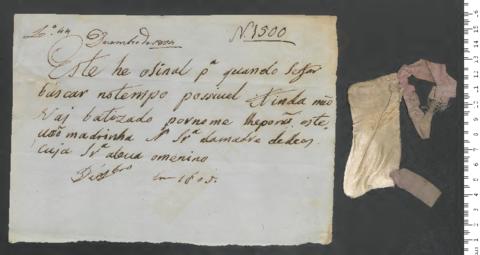 Lº 44
Dezembro de 1804
N 1500
Este he osinal pª quando se for
buscar notempo posiuel Ainda não
Vai batezado por nome lheporão este
madrinha Nª Srª damadre dedeos
cuja Srª o menino
Dez.bro 1805.